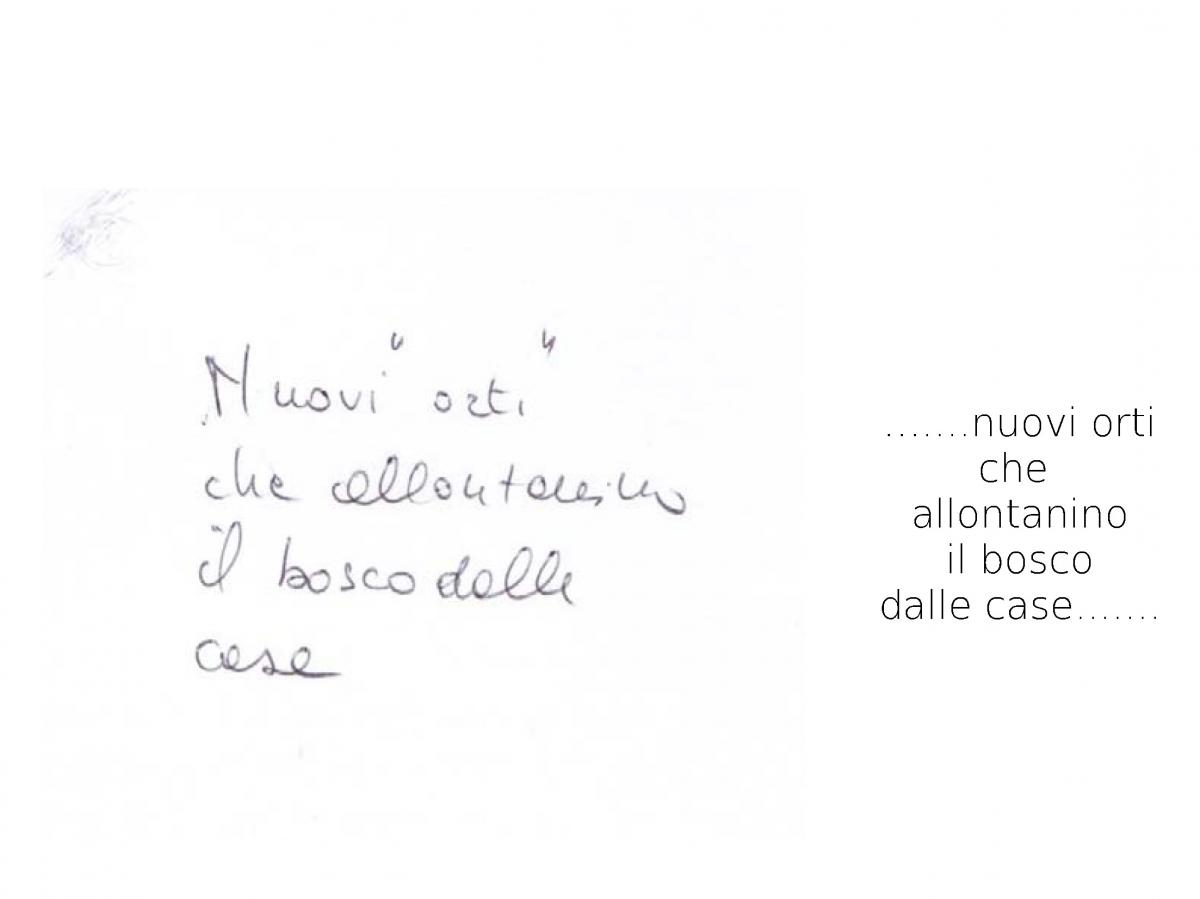 Nuovi "orti"
che allontanino
il bosco dalle
case
.......nuovi orti
che
allontanino
il bosco
dalle case.......